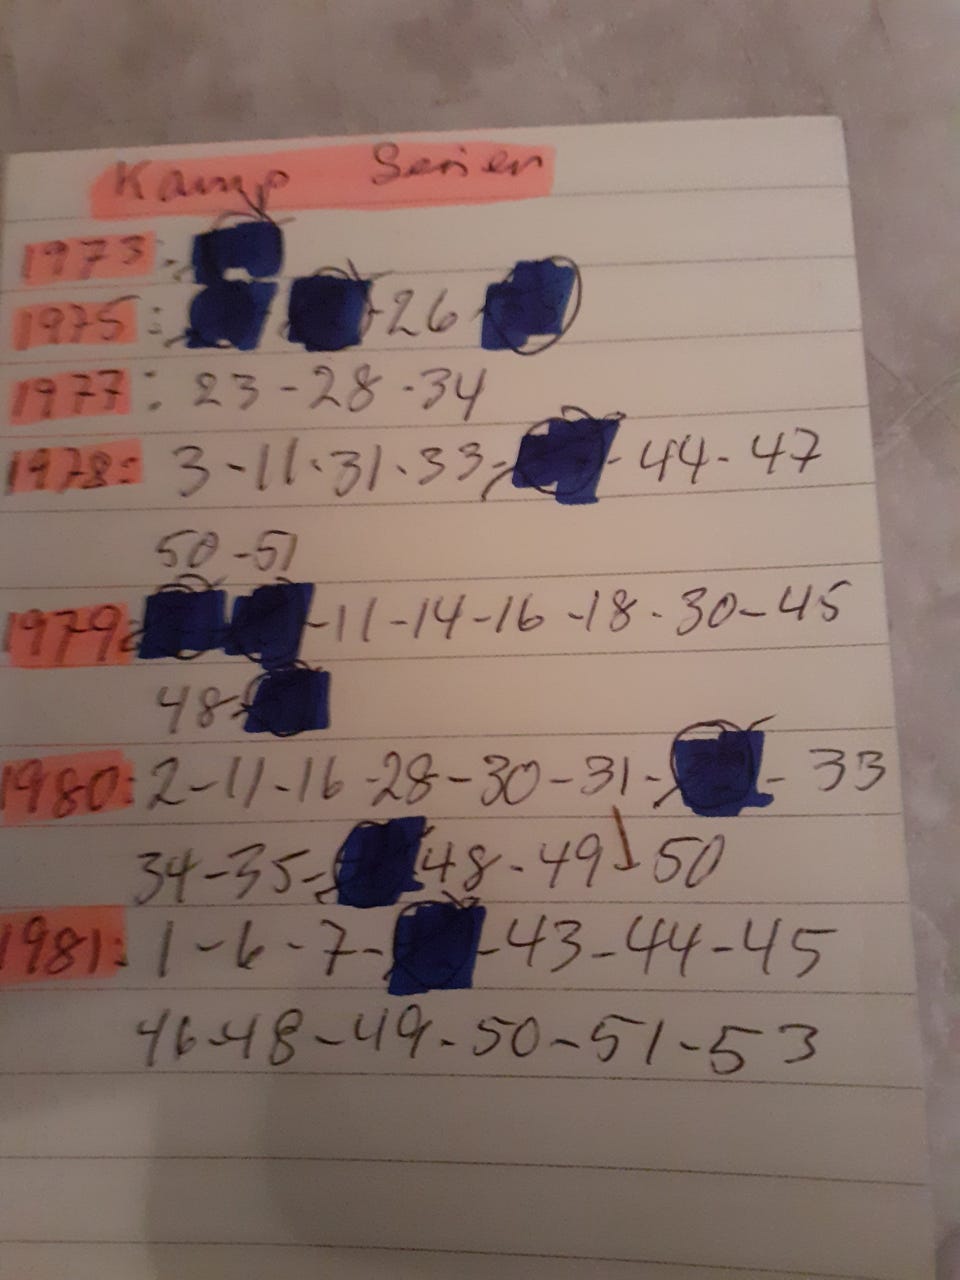 Kamp Serien
1973:
1975: 26
1977: 23 - 28 - 34
1978: 3 - 11 - 31 - 33 - - 44 - 47
50 - 51
1979: - 11 - 14 - 16 - 18 - 30 - 45
48 -
1980: 2 - 11 - 16 - 28 - 30 - 31 - - 33
34 - 35 - 48 - 49 - 50
1981: 1 - 6 - 7 - - 43 - 44 - 45
46 - 48 - 49 - 50 - 51 - 53